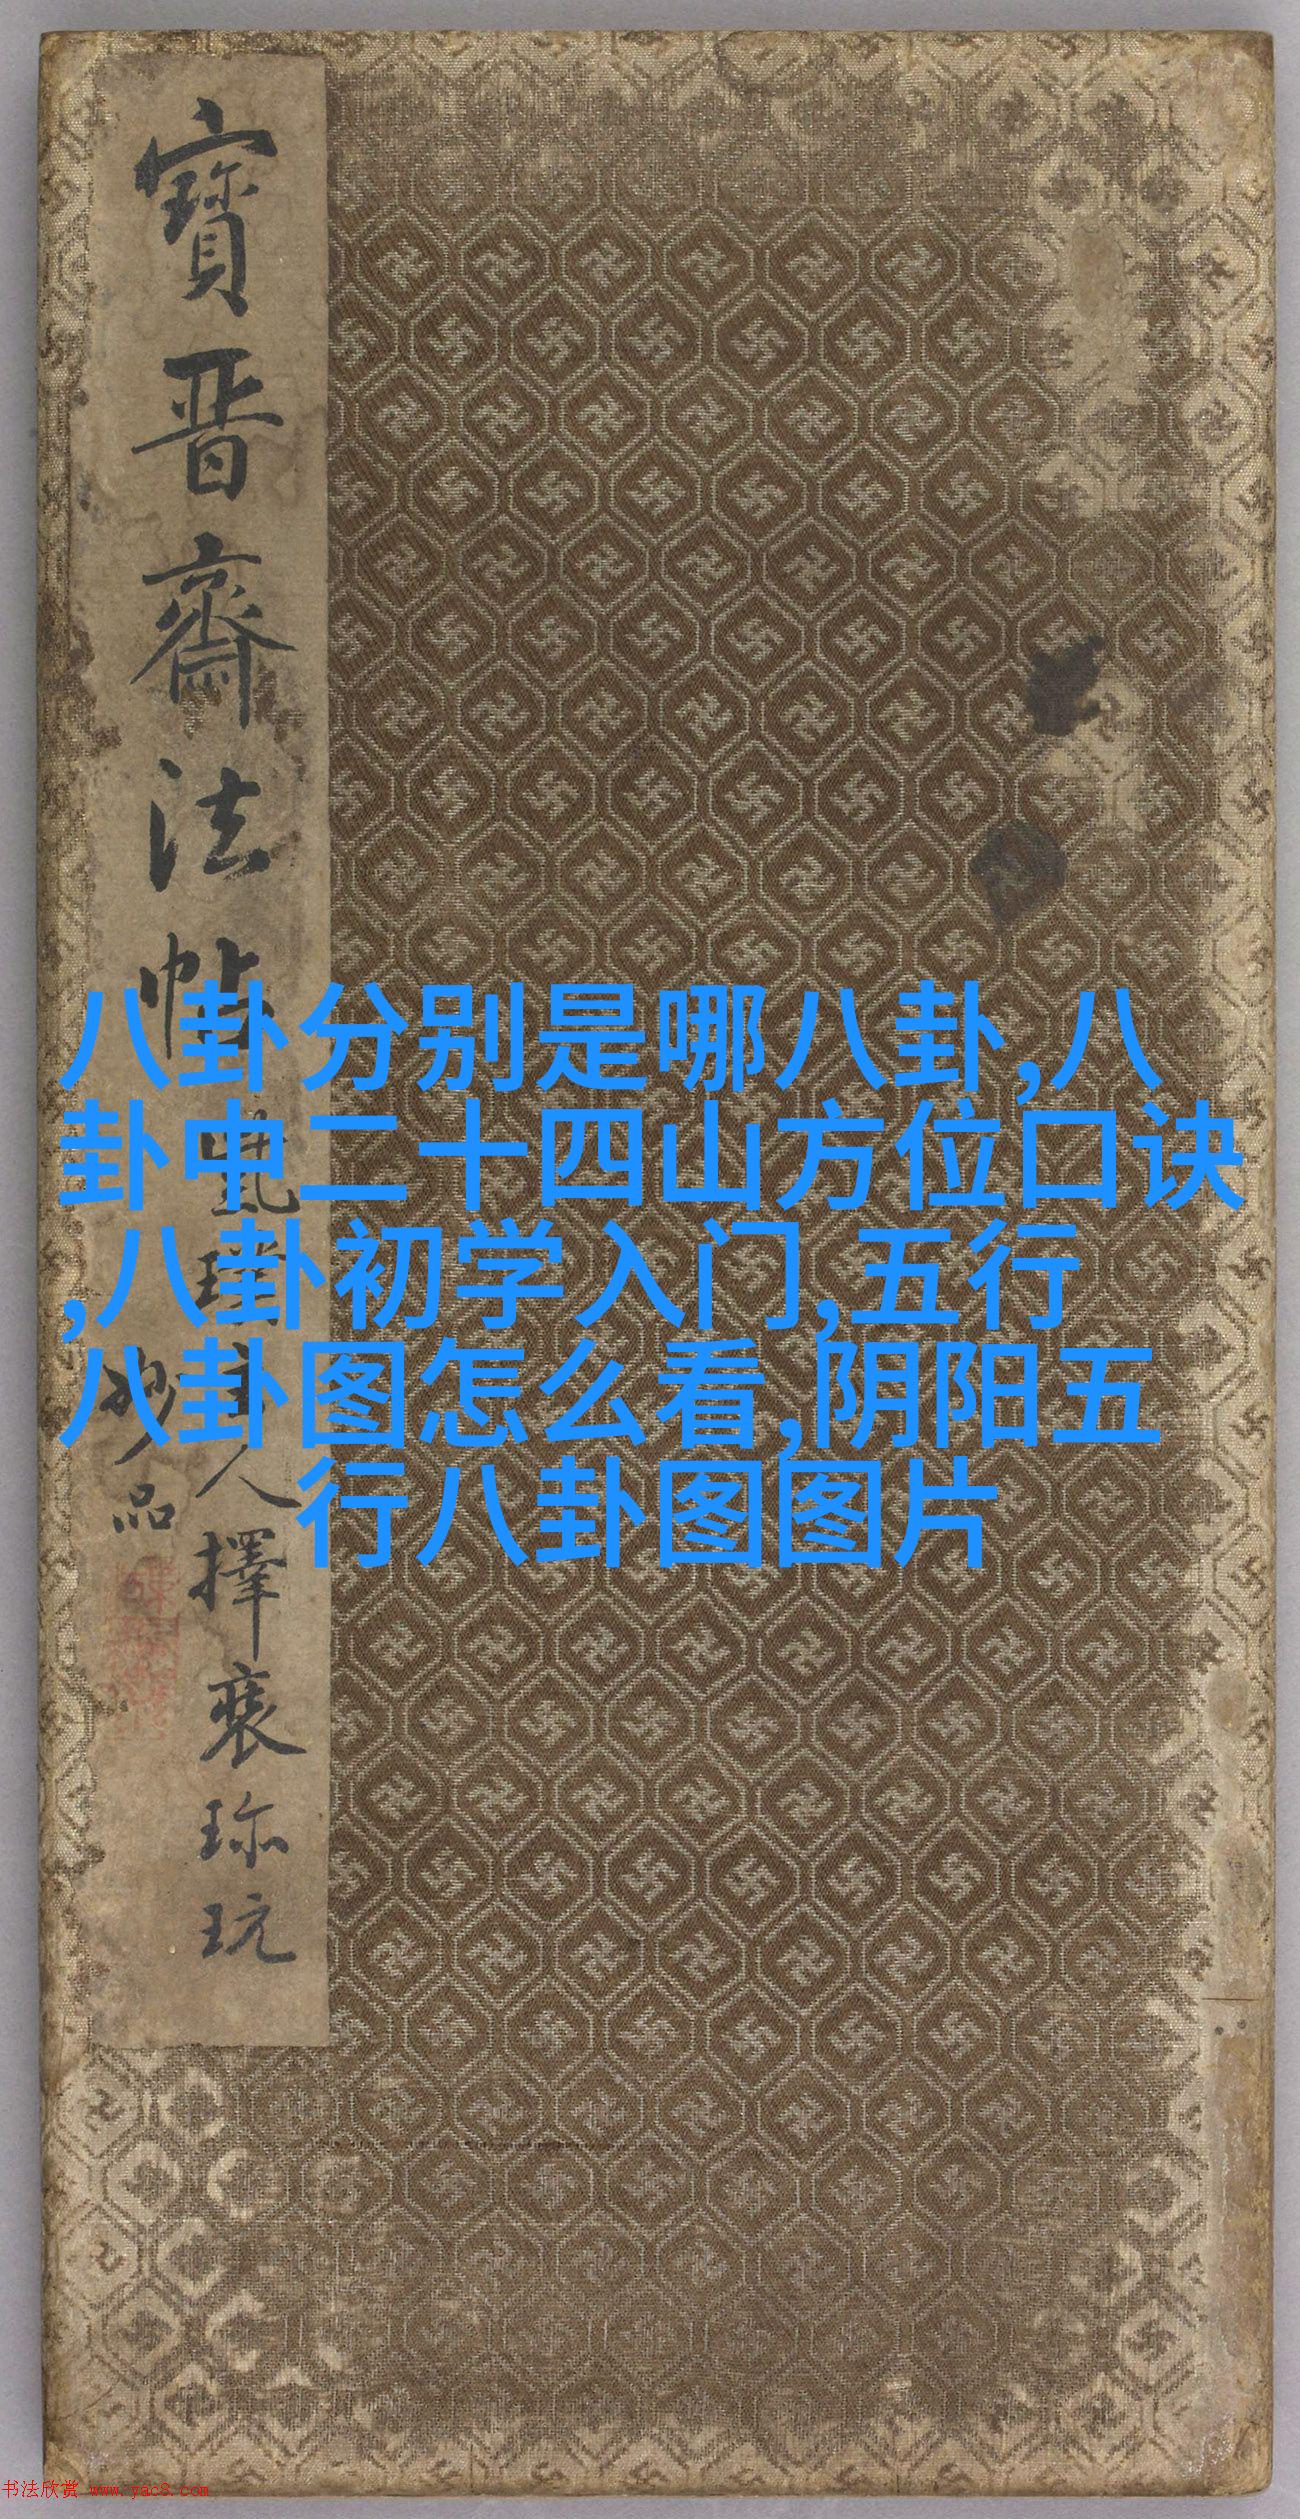 寶晉齋法帖
人擇裒珎玩
妙品
八卦分别是哪八卦,八
卦中二十四山方位口诀
,八卦初学入门,五行
八卦图怎么看,阴阳五
行八卦图图片
书法欣赏 www.yac8.com